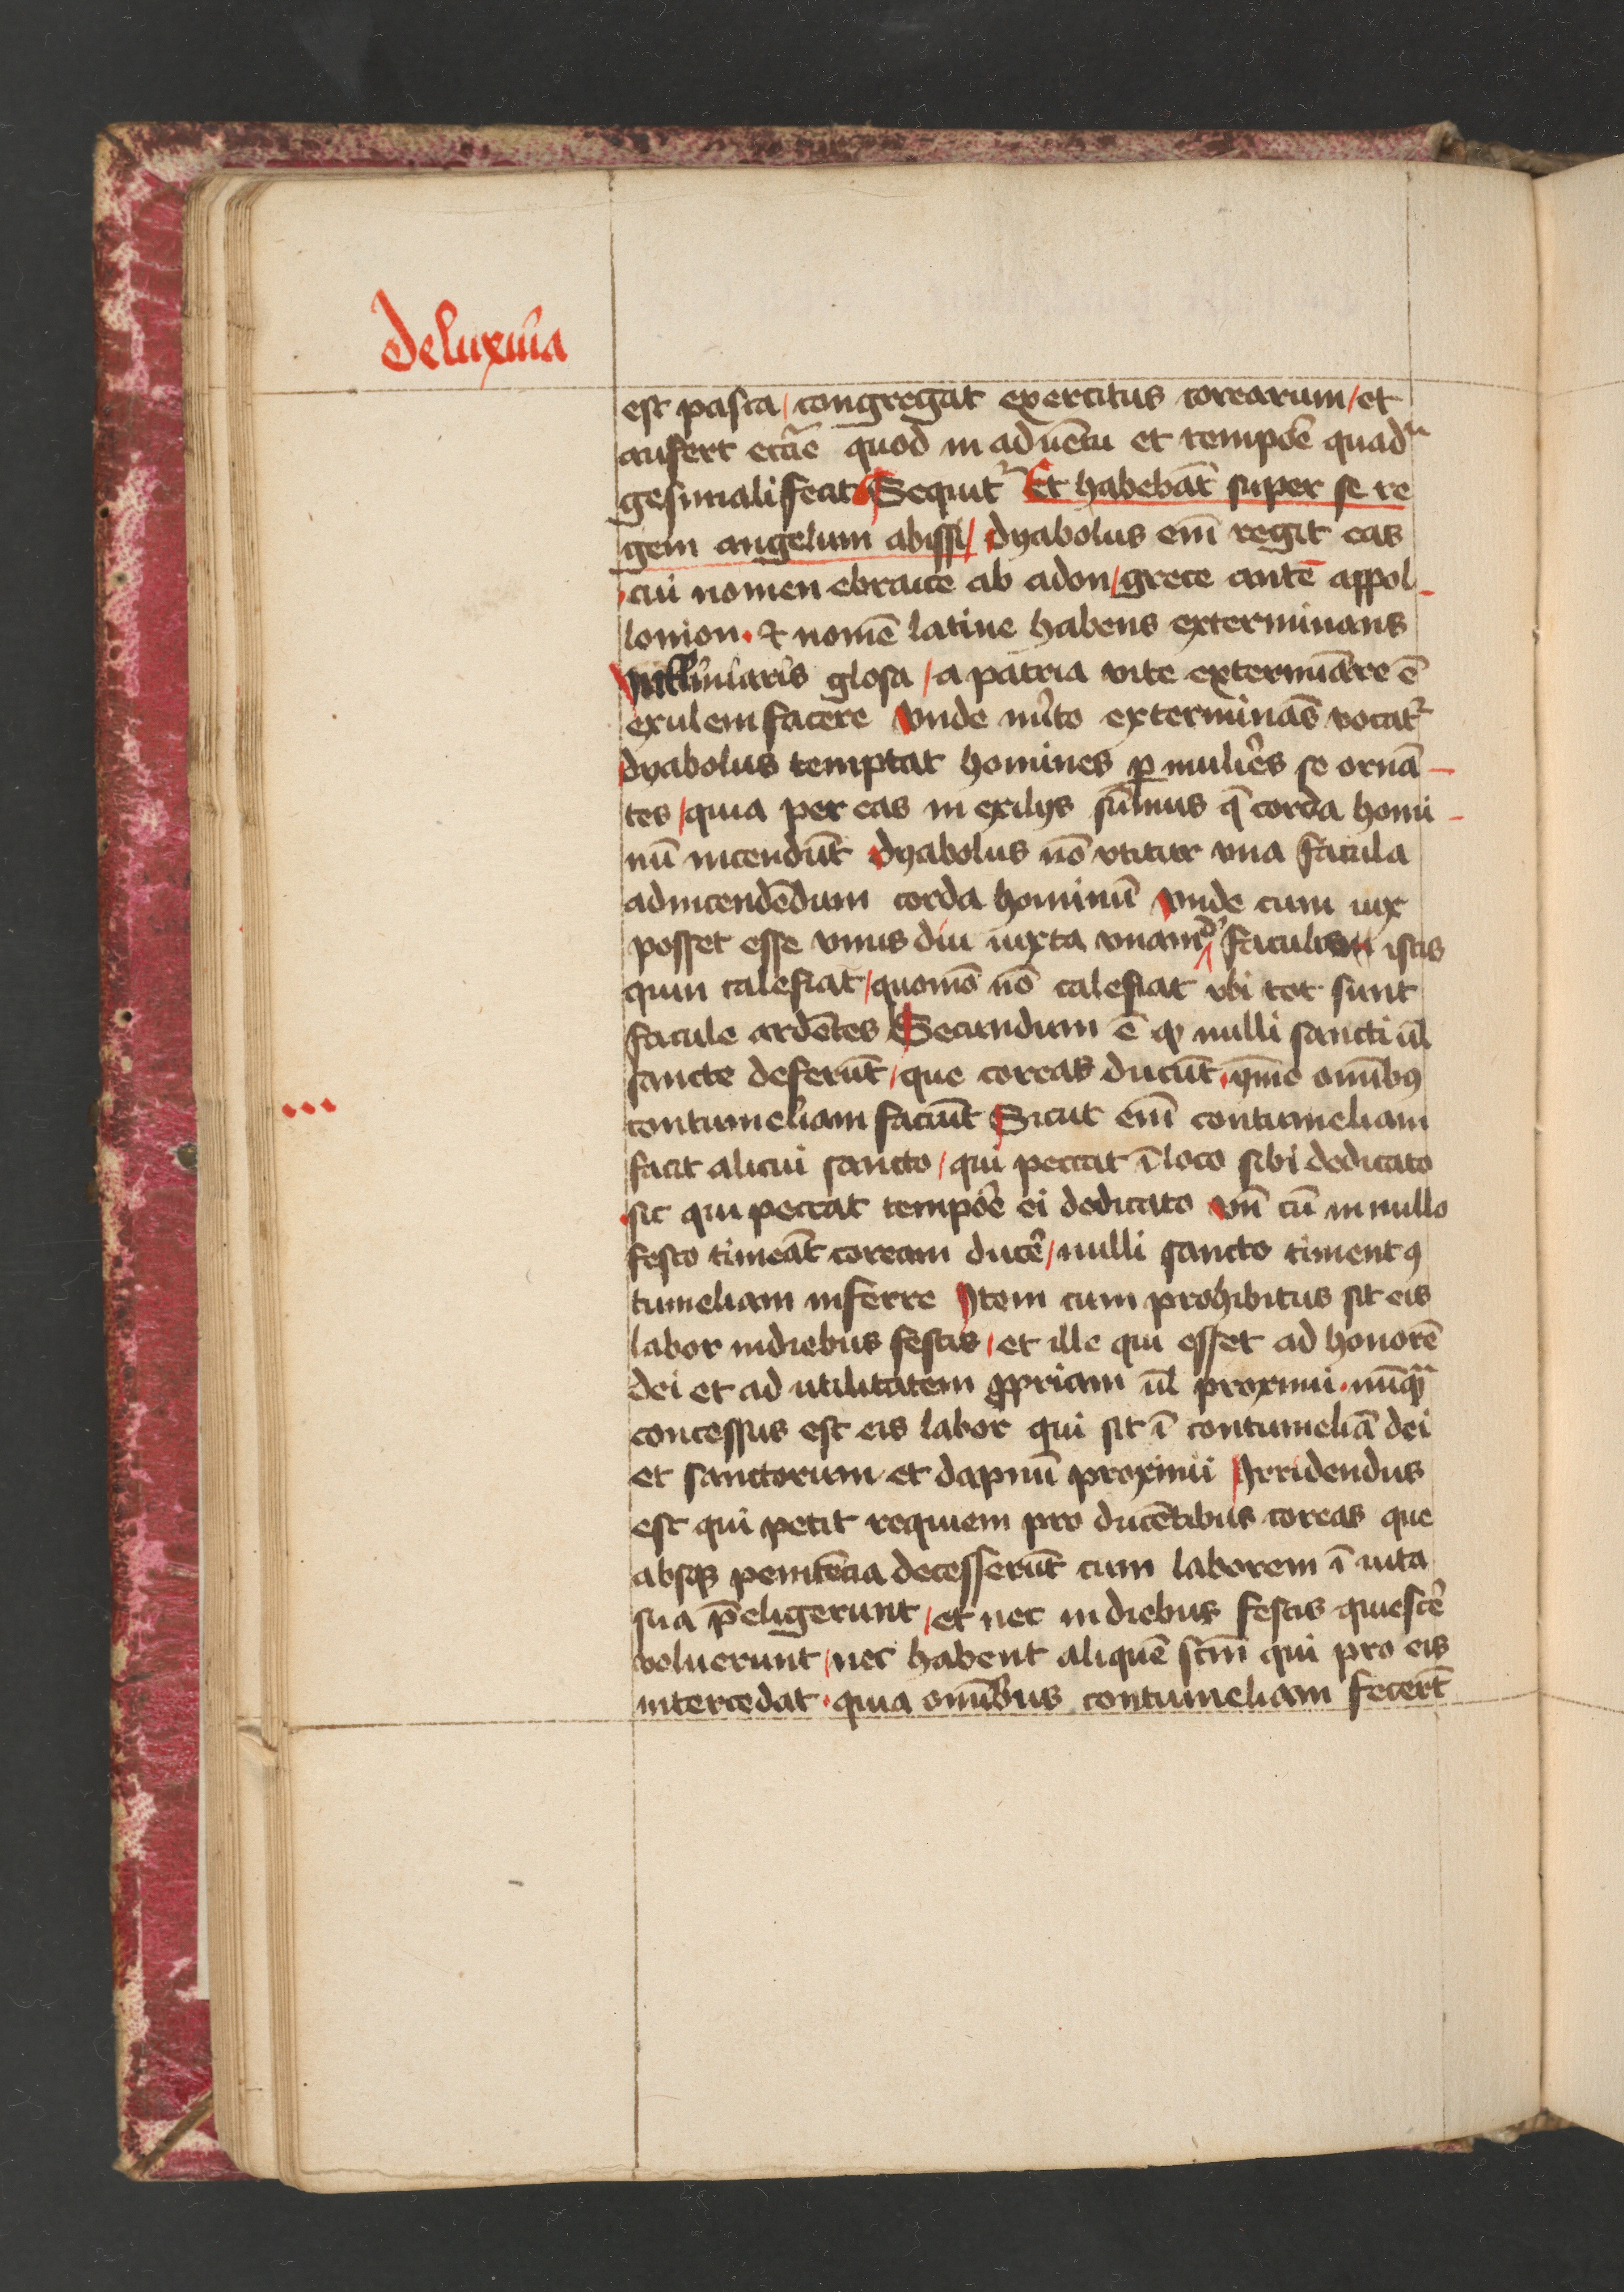 De luxuria
est pasca / congregat exercitus corearum / et
aufert eccl̄ie quod in aduētu et tempoꝛe quadra
gesimali fecit Sequitᷣ Et habebāt super se re
gem angelum abissi / dyabolus em̄ regit eas
cui nomen ebraice ab adon / grece autē appol
lonion · & nomē latine habens exterminans
glosa / a patria vite extermīare ē
exulem facere Vnde mĩto exterminās vocatᷣ
dyabolus temptat homines ꝑ mulieres se ornā
tes / quia per eas in exilijs sumus q̄ corda homi
nū incendūt dyabolus nō vtitur vna facula
ad incendēdum corda hominū Vnde cum uix
posset esse vnus diu iuxta vnam de faculis istis
quin calefiat / quomō nō calefiat vbi tot sunt
facule ardētes Secundum ē ꝙ nulli sancti ul̄
sancte deferūt / que coreas ducūt · ymo omībꝰ
contumeliam faciūt Sicut em̄ contumeliam
facit alicui sancto / qui peccat ī loco sibi dedicato
sic qui peccat tempoꝛe ei dedicato Vn̄ cū in nullo
festo timeāt coream ducē / nulli sancto timent ꝯ
tumeliam inferre Item cum prohibitus sit eis
labor in diebus festis / et ille qui esset ad honorē
dei et ad utilitatem ꝓpriam ul̄ proximi · nūqᷓ
concessus est eis labor qui sit ī contumeliā dei
et sanctorum et dapnū proximi Irridendus
est qui petit requiem pro ducētibus coreas que
absqꝫ penitēcia decesserūt cum laborem ī uita
sua p̄eligerunt / et nec in diebus festis quiescē
voluerunt / nec habent aliquē sc̄m qui pro eis
intercedat · quia omībus contumeliam fecerūt